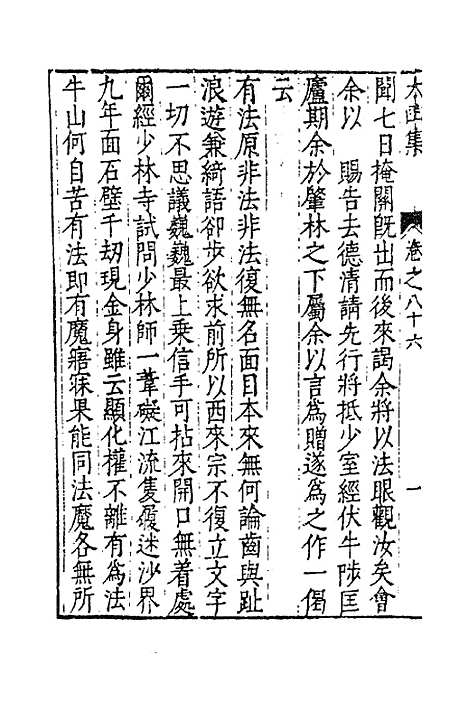 太函集
卷之八十六
一
聞七日掩關旣出而後來謁余將以法眼觀汝矣會
余以　賜告去德清請先行將抵少室經伏牛陟匡
廬期余於肇林之下屬余以言爲贈遂爲之作一偈
云
有法原非法非法復無名面目本來無何論齒與趾
浪遊兼綺語卻步欲求前所以西來宗不復立文字
一切不思議巍巍最上乗信手可拈來開口無着處
爾經少林寺試問少林師一葦礙江流隻履迷沙界
九年面石壁千劫現金身雖云顯化權不離有爲法
牛山何自苦有法即有魔寤寐果能同法魔各無所